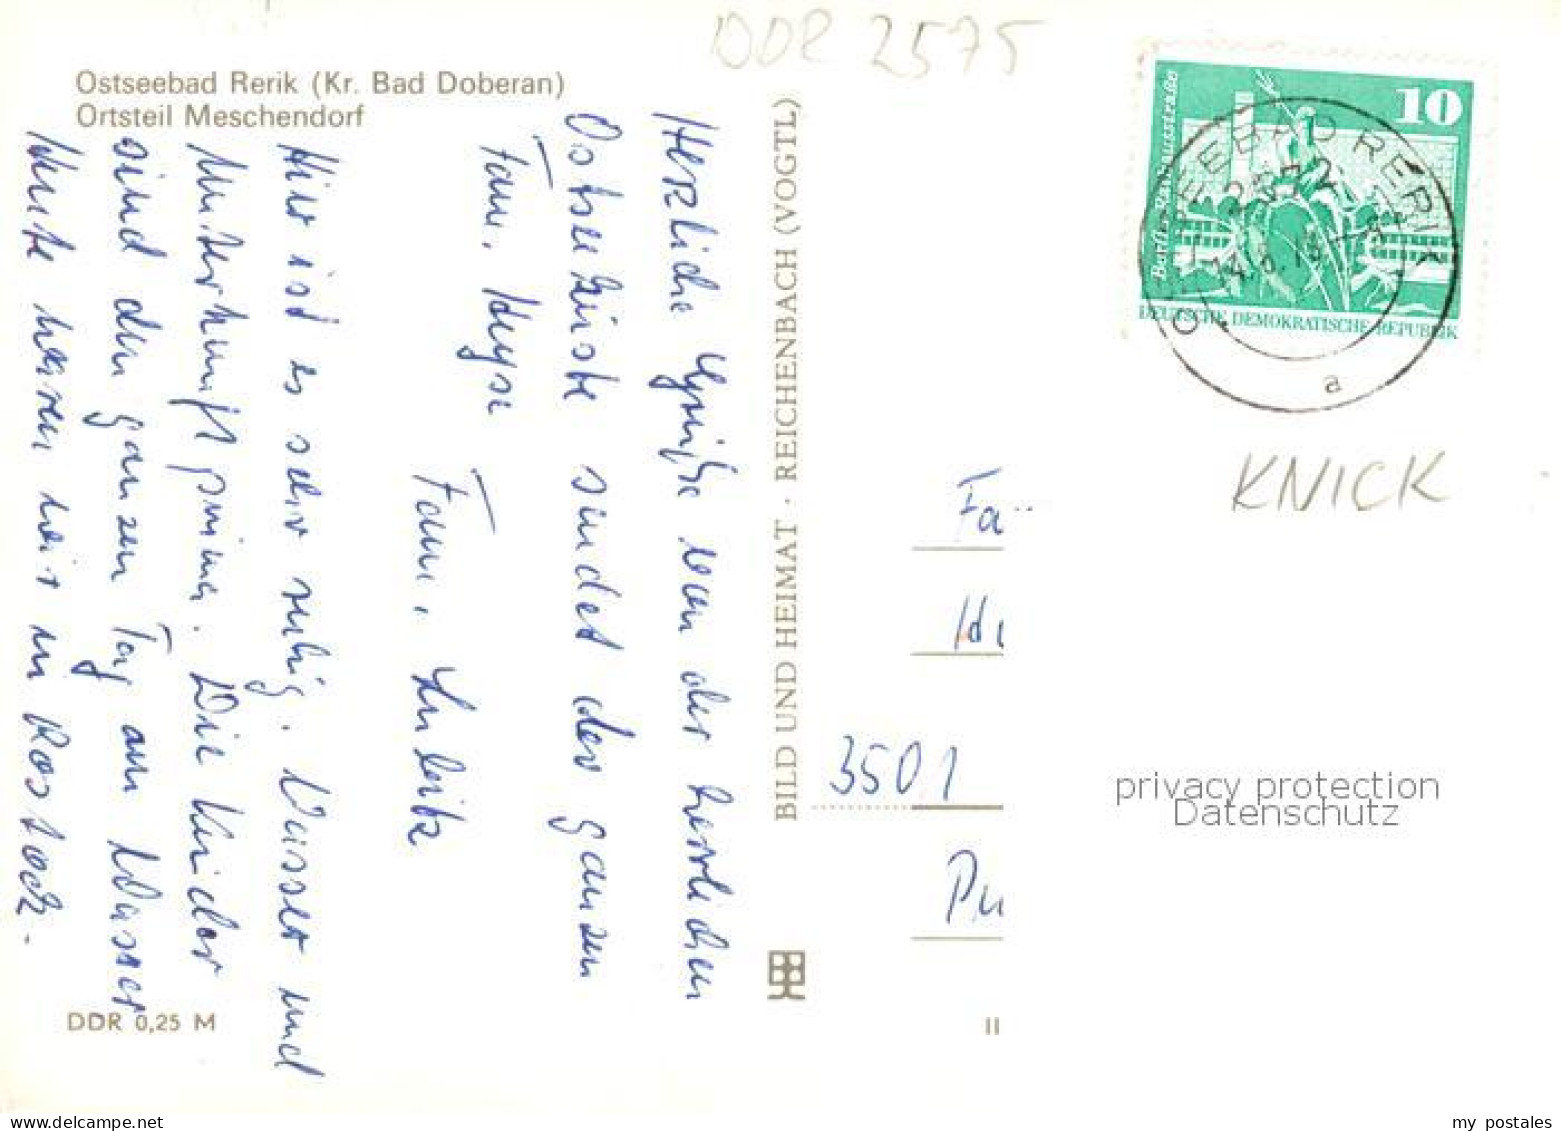 DDR 2575
Ostseebad Rerik (Kr. Bad Doberan)
Ortsteil Meschendorf
10
Berlin-Rathausstraße
DEUTSCHE DEMOKRATISCHE REPUBLIK
OSTSEEBAD RERIK
a
KNICK
Herzliche Grüße von der herrlichen
Ostseeküste sendet der ganzen
Fam. Heyse
Fam. Lubitz
Hier ist es sehr ruhig. Wasser und
Unterkunft prima. Die Kinder
sind den ganzen Tag am Wasser
Heute waren wir in Rostock.
BILD UND HEIMAT · REICHENBACH (VOGTL)
Fa
3501
privacy protection
Datenschutz
DDR 0,25 M
II
my-postcard.com
my postales